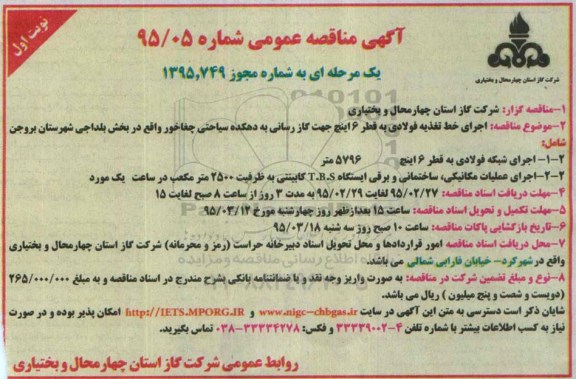 نوبت اول
آگهی مناقصه عمومی شماره ۹۵/۰۵
یک مرحله ای به شماره مجوز ۱۳۹۵,۷۴۹
شرکت گاز استان چهارمحال و بختیاری
۱-مناقصه گزار: شرکت گاز استان چهارمحال و بختیاری
۲-موضوع مناقصه: اجرای خط تغذیه فولادی به قطر ۶ اینچ جهت گاز رسانی به دهکده سیاحتی چغاخور واقع در بخش بلداجی شهرستان بروجن
شامل:
۲-۱- اجرای شبکه فولادی به قطر ۶ اینچ ۵۷۹۶ متر
۲-۲-اجرای عملیات مکانیکی، ساختمانی و برقی ایستگاه T.B.S کابینتی به ظرفیت ۲۵۰۰ متر مکعب در ساعت یک مورد
۴-مهلت دریافت اسناد مناقصه: ۹۵/۰۲/۲۷ لغایت ۹۵/۰۲/۲۹ به مدت ۳ روز از ساعت ۸ صبح لغایت ۱۵
۵-مهلت تکمیل و تحویل اسناد مناقصه: ساعت ۱۵ بعدازظهر روز چهارشنبه مورخ ۹۵/۰۳/۱۲
۶-تاریخ بازگشایی پاکات مناقصه: ساعت ۱۰ صبح روز سه شنبه ۹۵/۰۳/۱۸
۷-محل دریافت اسناد مناقصه امور قراردادها و محل تحویل اسناد دبیرخانه حراست (رمز و محرمانه) شرکت گاز استان چهارمحال و بختیاری
واقع در شهرکرد- خیابان فارابی شمالی می باشد.
۸-نوع و مبلغ تضمین شرکت در مناقصه: به صورت واریز وجه نقد و یا ضمانتنامه بانکی بشرح مندرج در اسناد مناقصه و به مبلغ ۲۶۵/۰۰۰/۰۰۰
(دویست و شصت و پنج میلیون) ریال می باشد.
شایان ذکر است دسترسی به متن این آگهی در سایت www.nigc-chbgas.ir و http://IETS.MPORG.IR امکان پذیر بوده و در صورت
نیاز به کسب اطلاعات بیشتر با شماره تلفن ۴-۳۳۳۳۹۰۰۲ و فکس: ۳۳۳۳۴۲۷۸-۰۳۸ تماس بگیرید.
روابط عمومی شرکت گاز استان چهارمحال و بختیاری